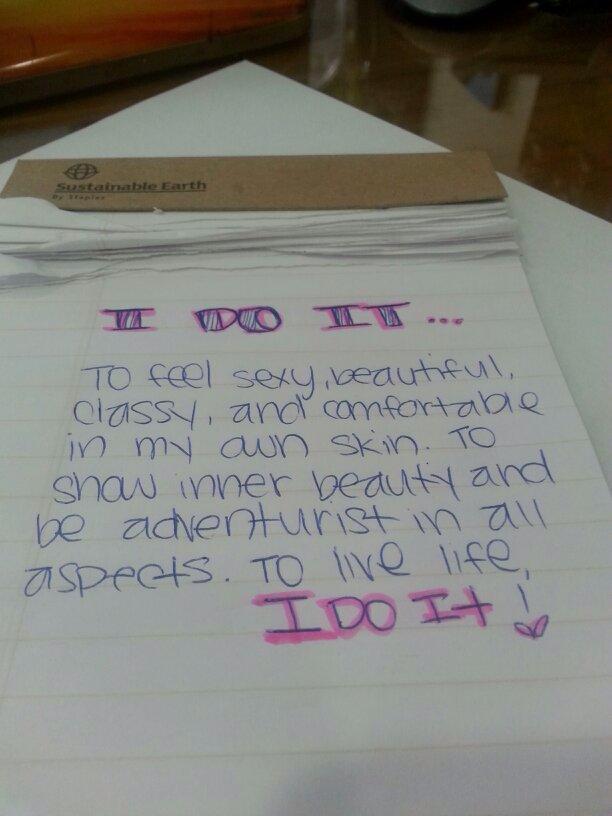 Sustainable Earth
By Staples
I DO IT...
To feel sexy, beautiful,
classy, and comfortable
in my own skin. To
show inner beauty and
be adventurist in all
aspects. To live life,
I DO It!